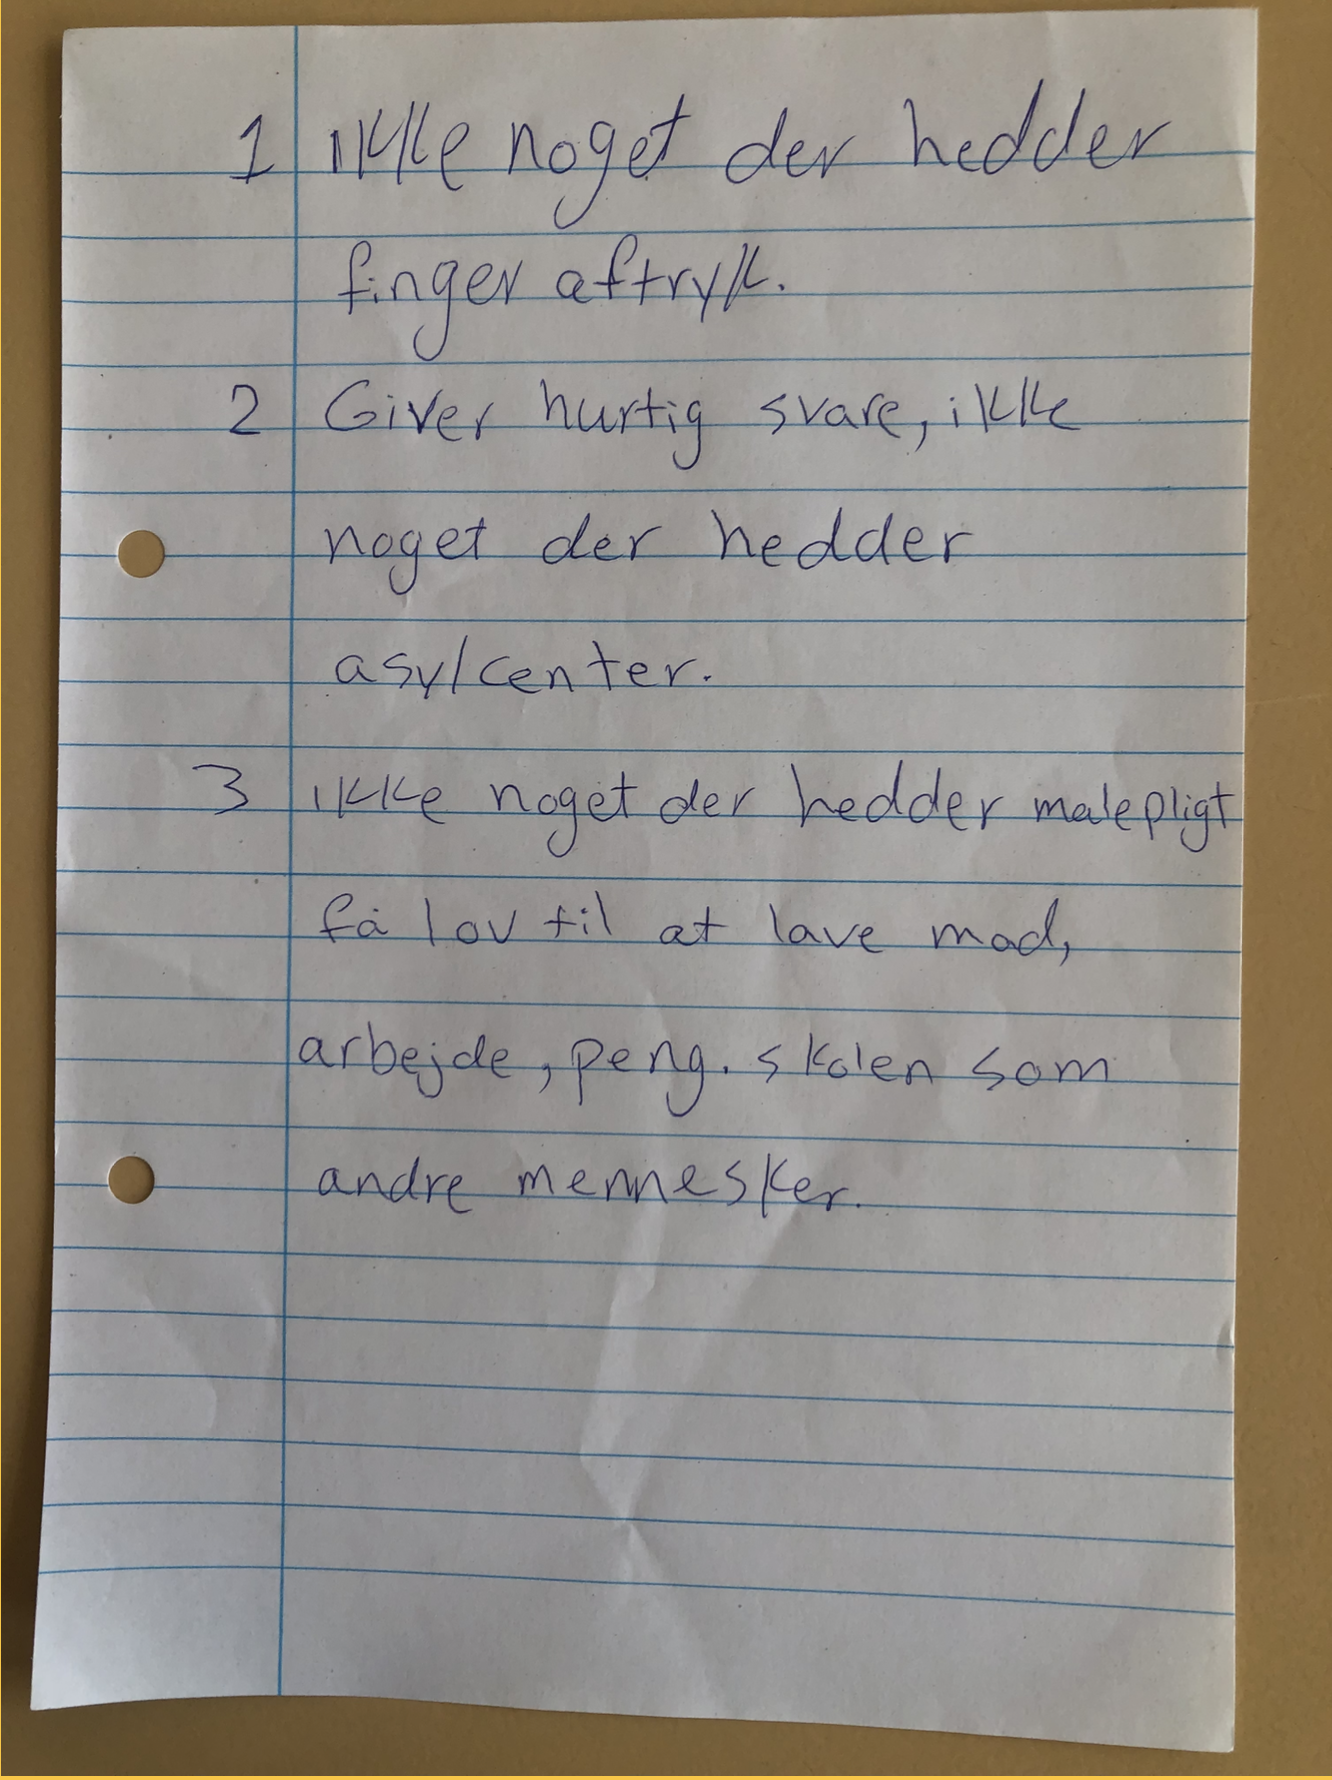 1 ikke noget der hedder
finger aftryk.
2 Giver hurtig svare, ikke
noget der hedder
asylcenter.
3 ikke noget der hedder malepligt
få lov til at lave mad,
arbejde, peng. skolen som
andre mennesker.